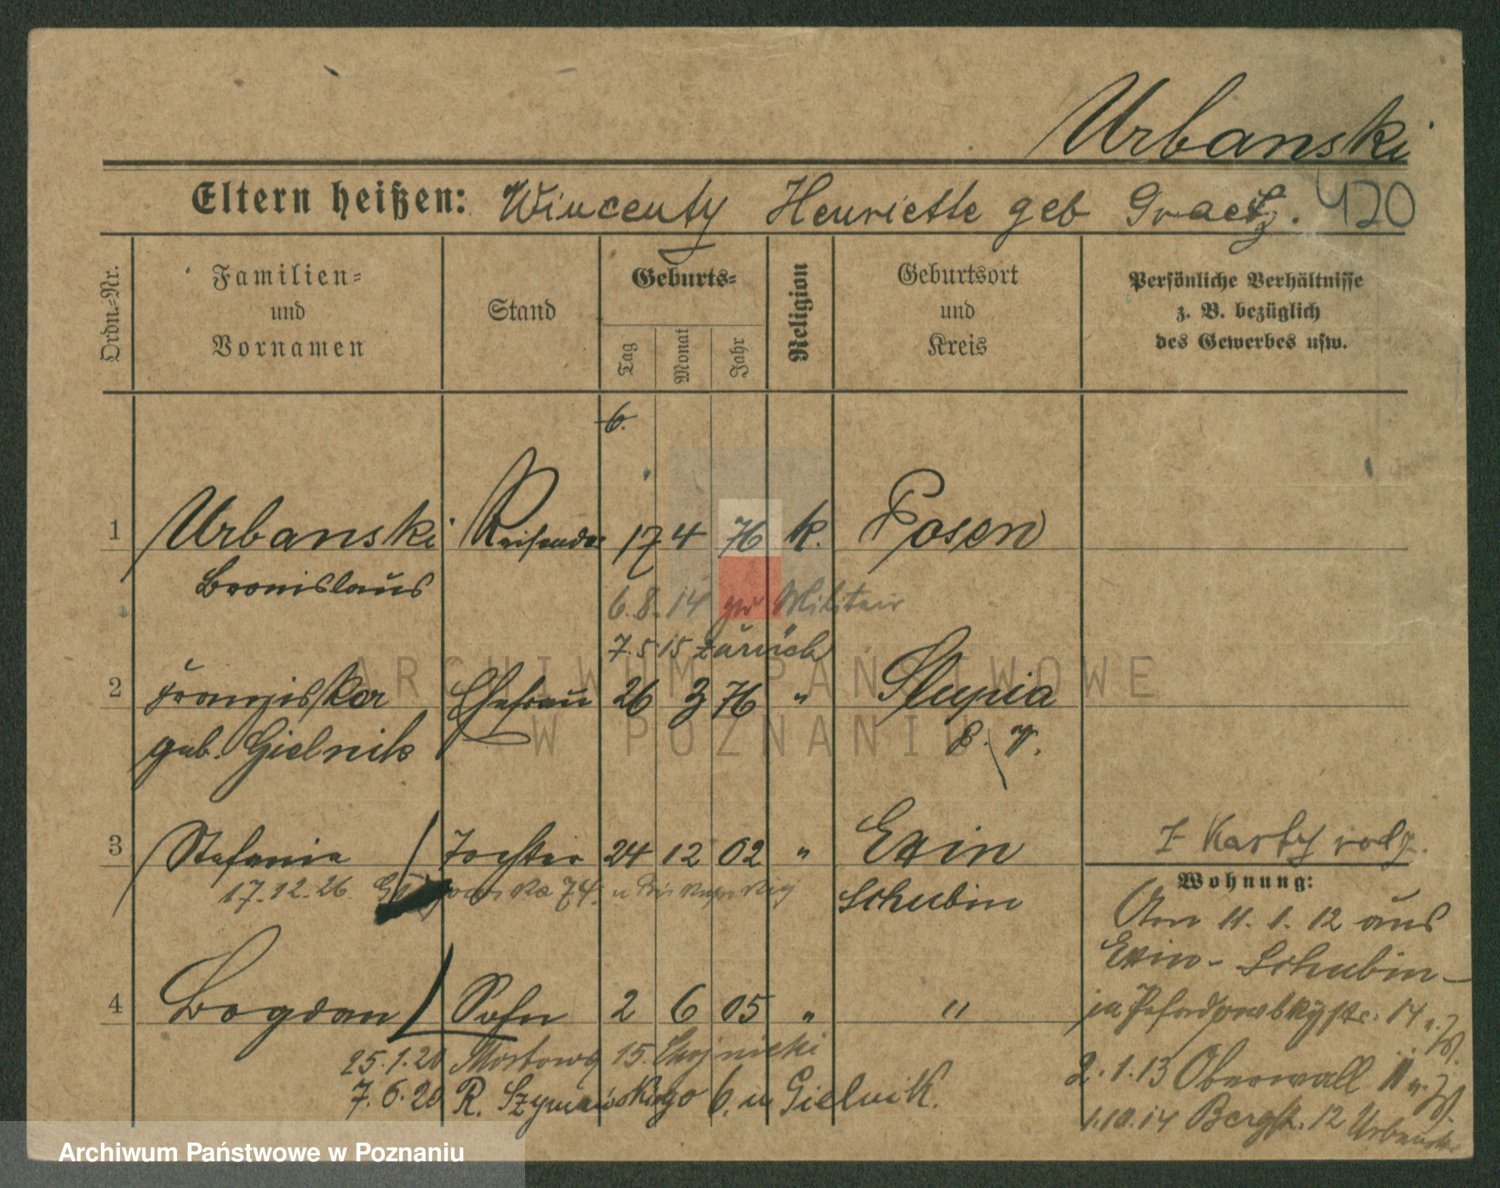 Urbanski
Eltern heißen: Wincenty Henriette geb Graetz. 420
Ordn.=Nr.
Familien=
und
Vornamen
Stand
Geburts=
Tag
Monat
Jahr
Religion
Geburtsort
und
Kreis
Persönliche Verhältnisse
z. B. bezüglich
des Gewerbes usw.
6.
1 Urbanski Reisender 17 4 76 k. Posen
Bronislaus
6.8.14 zu Militair
7.5 15 zurück
2 Franziska Ehefrau 26 3 76 " Slupia
geb. Gielnik
3 Stefania Tochter 24 12 02 " Exin
17.12.26 74.
Schubin
Wohnung:
Von 11. 1. 12 aus
Exin - Schubin -
14
4 Bogdan Sohn 2 6 05 " "
25.1.20 Mostowa 15.
2.1.13 Oberwall
7.6.20 R. Szymańskiego 6. u Gielnik.
1.10.14 Bergstr. 12 Urbanski
ARCHIWUM PAŃSTWOWE
W POZNANIU
Archiwum Państwowe w Poznaniu